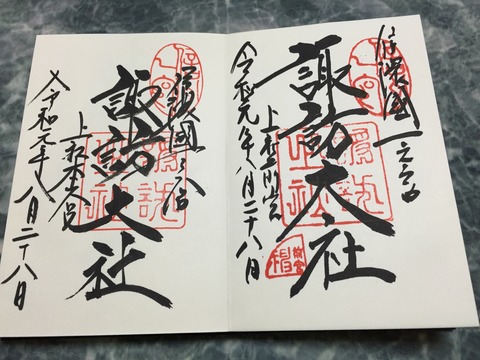 信濃國一之宮
諏訪大社
上社前宮
令和元年八月二十八日
信濃國一之宮
諏訪大社
上社本宮
令和元年八月二十八日
諏訪大社
諏訪大社